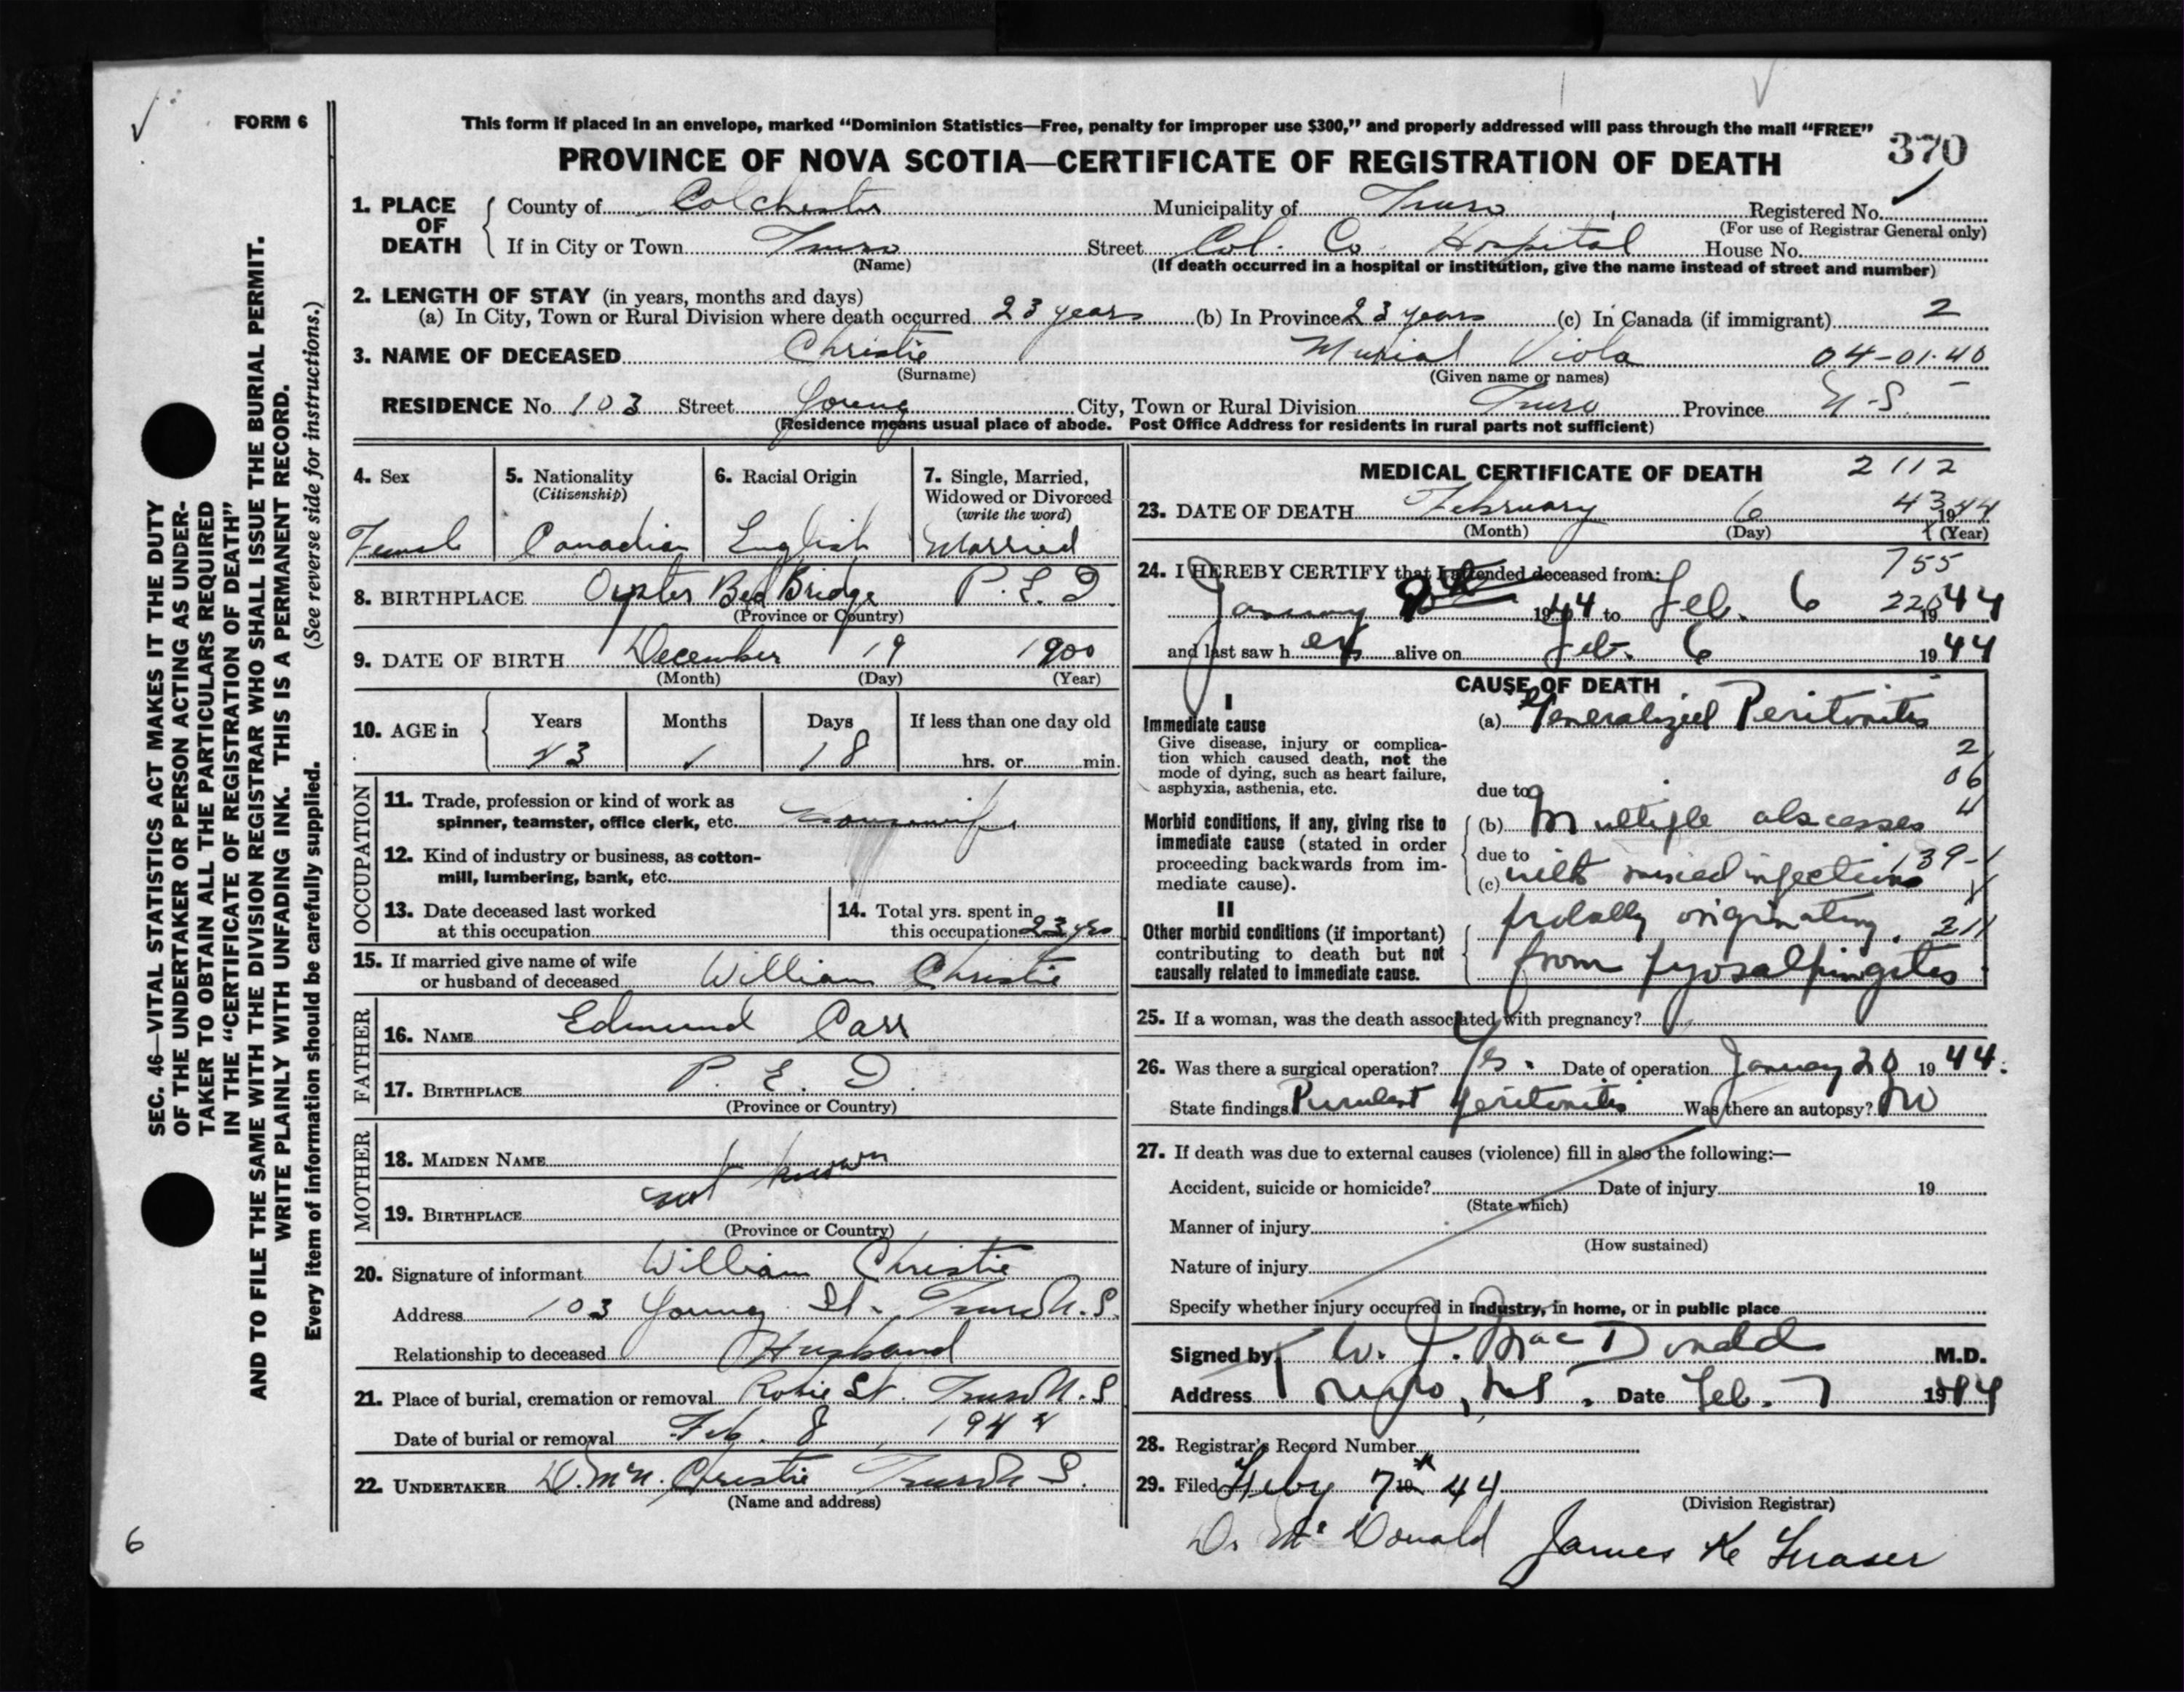 FORM 6
This form if placed in an envelope, marked “Dominion Statistics—Free, penalty for improper use $300,” and properly addressed will pass through the mail “FREE”
PROVINCE OF NOVA SCOTIA—CERTIFICATE OF REGISTRATION OF DEATH
370
1. PLACE OF DEATH
County of Colchester Municipality of Truro Registered No.
(For use of Registrar General only)
If in City or Town Truro Street Col. Co. Hospital House No.
(Name) (If death occurred in a hospital or institution, give the name instead of street and number)
2. LENGTH OF STAY (in years, months and days)
(a) In City, Town or Rural Division where death occurred 23 years (b) In Province 23 years (c) In Canada (if immigrant) 2
3. NAME OF DECEASED Christie Murial Viola 04-01-40
(Surname) (Given name or names)
RESIDENCE No. 103 Street Young City, Town or Rural Division Truro Province N-S.
(Residence means usual place of abode. Post Office Address for residents in rural parts not sufficient)
4. Sex
Female
5. Nationality
(Citizenship)
Canadian
6. Racial Origin
English
7. Single, Married,
Widowed or Divorced
(write the word)
Married
8. BIRTHPLACE Oyster Bed Bridge P.E.I.
(Province or Country)
9. DATE OF BIRTH December 19 1900
(Month) (Day) (Year)
10. AGE in
Years Months Days If less than one day old
43 1 18 hrs. or min.
OCCUPATION
11. Trade, profession or kind of work as
spinner, teamster, office clerk, etc. Housewife
12. Kind of industry or business, as cotton-
mill, lumbering, bank, etc.
13. Date deceased last worked
at this occupation
14. Total yrs. spent in
this occupation 23 yrs
15. If married give name of wife
or husband of deceased William Christie
FATHER
16. NAME Edmund Carr
17. BIRTHPLACE P. E. I.
(Province or Country)
MOTHER
18. MAIDEN NAME
not known
19. BIRTHPLACE
(Province or Country)
20. Signature of informant William Christie
Address 103 Young St. Truro N.S.
Relationship to deceased Husband
21. Place of burial, cremation or removal Robie St. Truro N.S
Date of burial or removal Feb. 8, 1944
22. UNDERTAKER D. McN. Christie Truro N S.
(Name and address)
MEDICAL CERTIFICATE OF DEATH 2112
23. DATE OF DEATH February 6 43 1944
(Month) (Day) (Year)
24. I HEREBY CERTIFY that I attended deceased from: 755
January 1944 to Feb. 6 220 1944
and last saw her alive on Feb. 6 1944
CAUSE OF DEATH
I
Immediate cause
Give disease, injury or complica-
tion which caused death, not the
mode of dying, such as heart failure,
asphyxia, asthenia, etc.
(a) Generalized Peritonitis
2
06
4
due to
Morbid conditions, if any, giving rise to
immediate cause (stated in order
proceeding backwards from im-
mediate cause).
(b) Multiple abscesses
due to
139-1
(c) with mixed infections
II
Other morbid conditions (if important)
contributing to death but not
causally related to immediate cause.
probably originating. 211
from pyosalpingitis
25. If a woman, was the death associated with pregnancy?
26. Was there a surgical operation? Yes. Date of operation January 20 1944.
State findings Purulent Peritonitis Was there an autopsy? No
27. If death was due to external causes (violence) fill in also the following:—
Accident, suicide or homicide? Date of injury 19
(State which)
Manner of injury
(How sustained)
Nature of injury
Specify whether injury occurred in industry, in home, or in public place
Signed by W. J. MacDonald M.D.
Address Truro, N.S. Date Feb. 7 1944
28. Registrar's Record Number
29. Filed Feby 7th 19 44
(Division Registrar)
Dr McDonald James K Fraser
SEC. 46—VITAL STATISTICS ACT MAKES IT THE DUTY
OF THE UNDERTAKER OR PERSON ACTING AS UNDER-
TAKER TO OBTAIN ALL THE PARTICULARS REQUIRED
IN THE “CERTIFICATE OF REGISTRATION OF DEATH”
AND TO FILE THE SAME WITH THE DIVISION REGISTRAR WHO SHALL ISSUE THE BURIAL PERMIT.
WRITE PLAINLY WITH UNFADING INK. THIS IS A PERMANENT RECORD.
Every item of information should be carefully supplied. (See reverse side for instructions.)
6